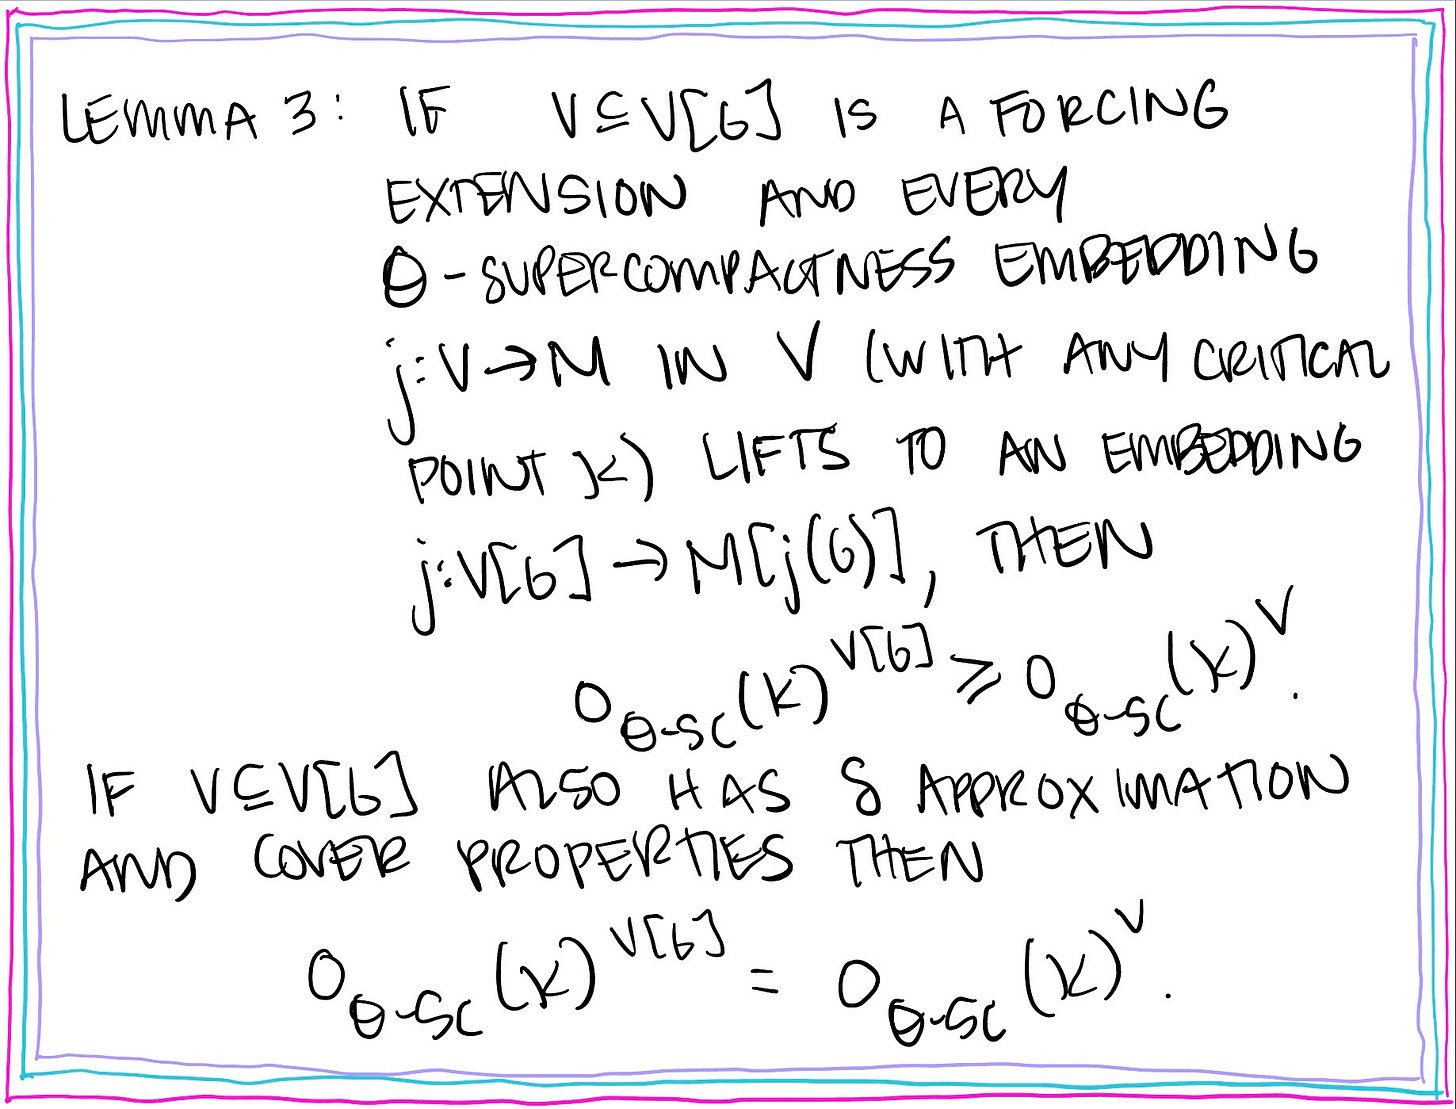 LEMMA 3: IF V⊆V[G] IS A FORCING
EXTENSION AND EVERY
θ-SUPERCOMPACTNESS EMBEDDING
j:V→M IN V (WITH ANY CRITICAL
POINT κ) LIFTS TO AN EMBEDDING
j:V[G]→M[j(G)], THEN
o_{θ-sc}(κ)^{V[G]} ≥ o_{θ-sc}(κ)^V.
IF V⊆V[G] ALSO HAS δ APPROXIMATION
AND COVER PROPERTIES THEN
o_{θ-sc}(κ)^{V[G]} = o_{θ-sc}(κ)^V.